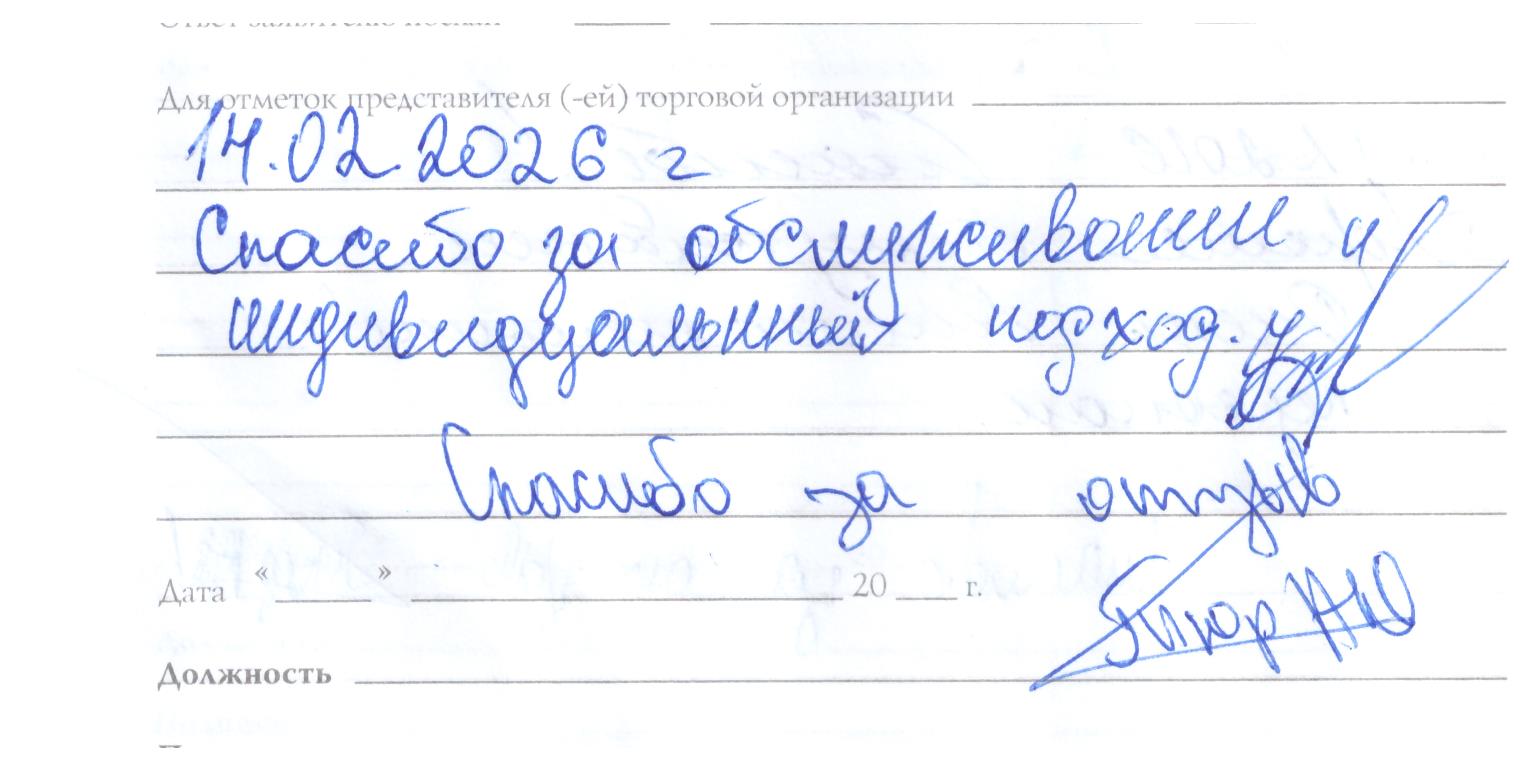 Для отметок представителя (-ей) торговой организации
14.02.2026 г
Спасибо за обслуживании и
индивидуальнный подход.
Спасибо за отзыв
Дата «____» ____ 20 ____ г.
Тюр А.Ю
Должность